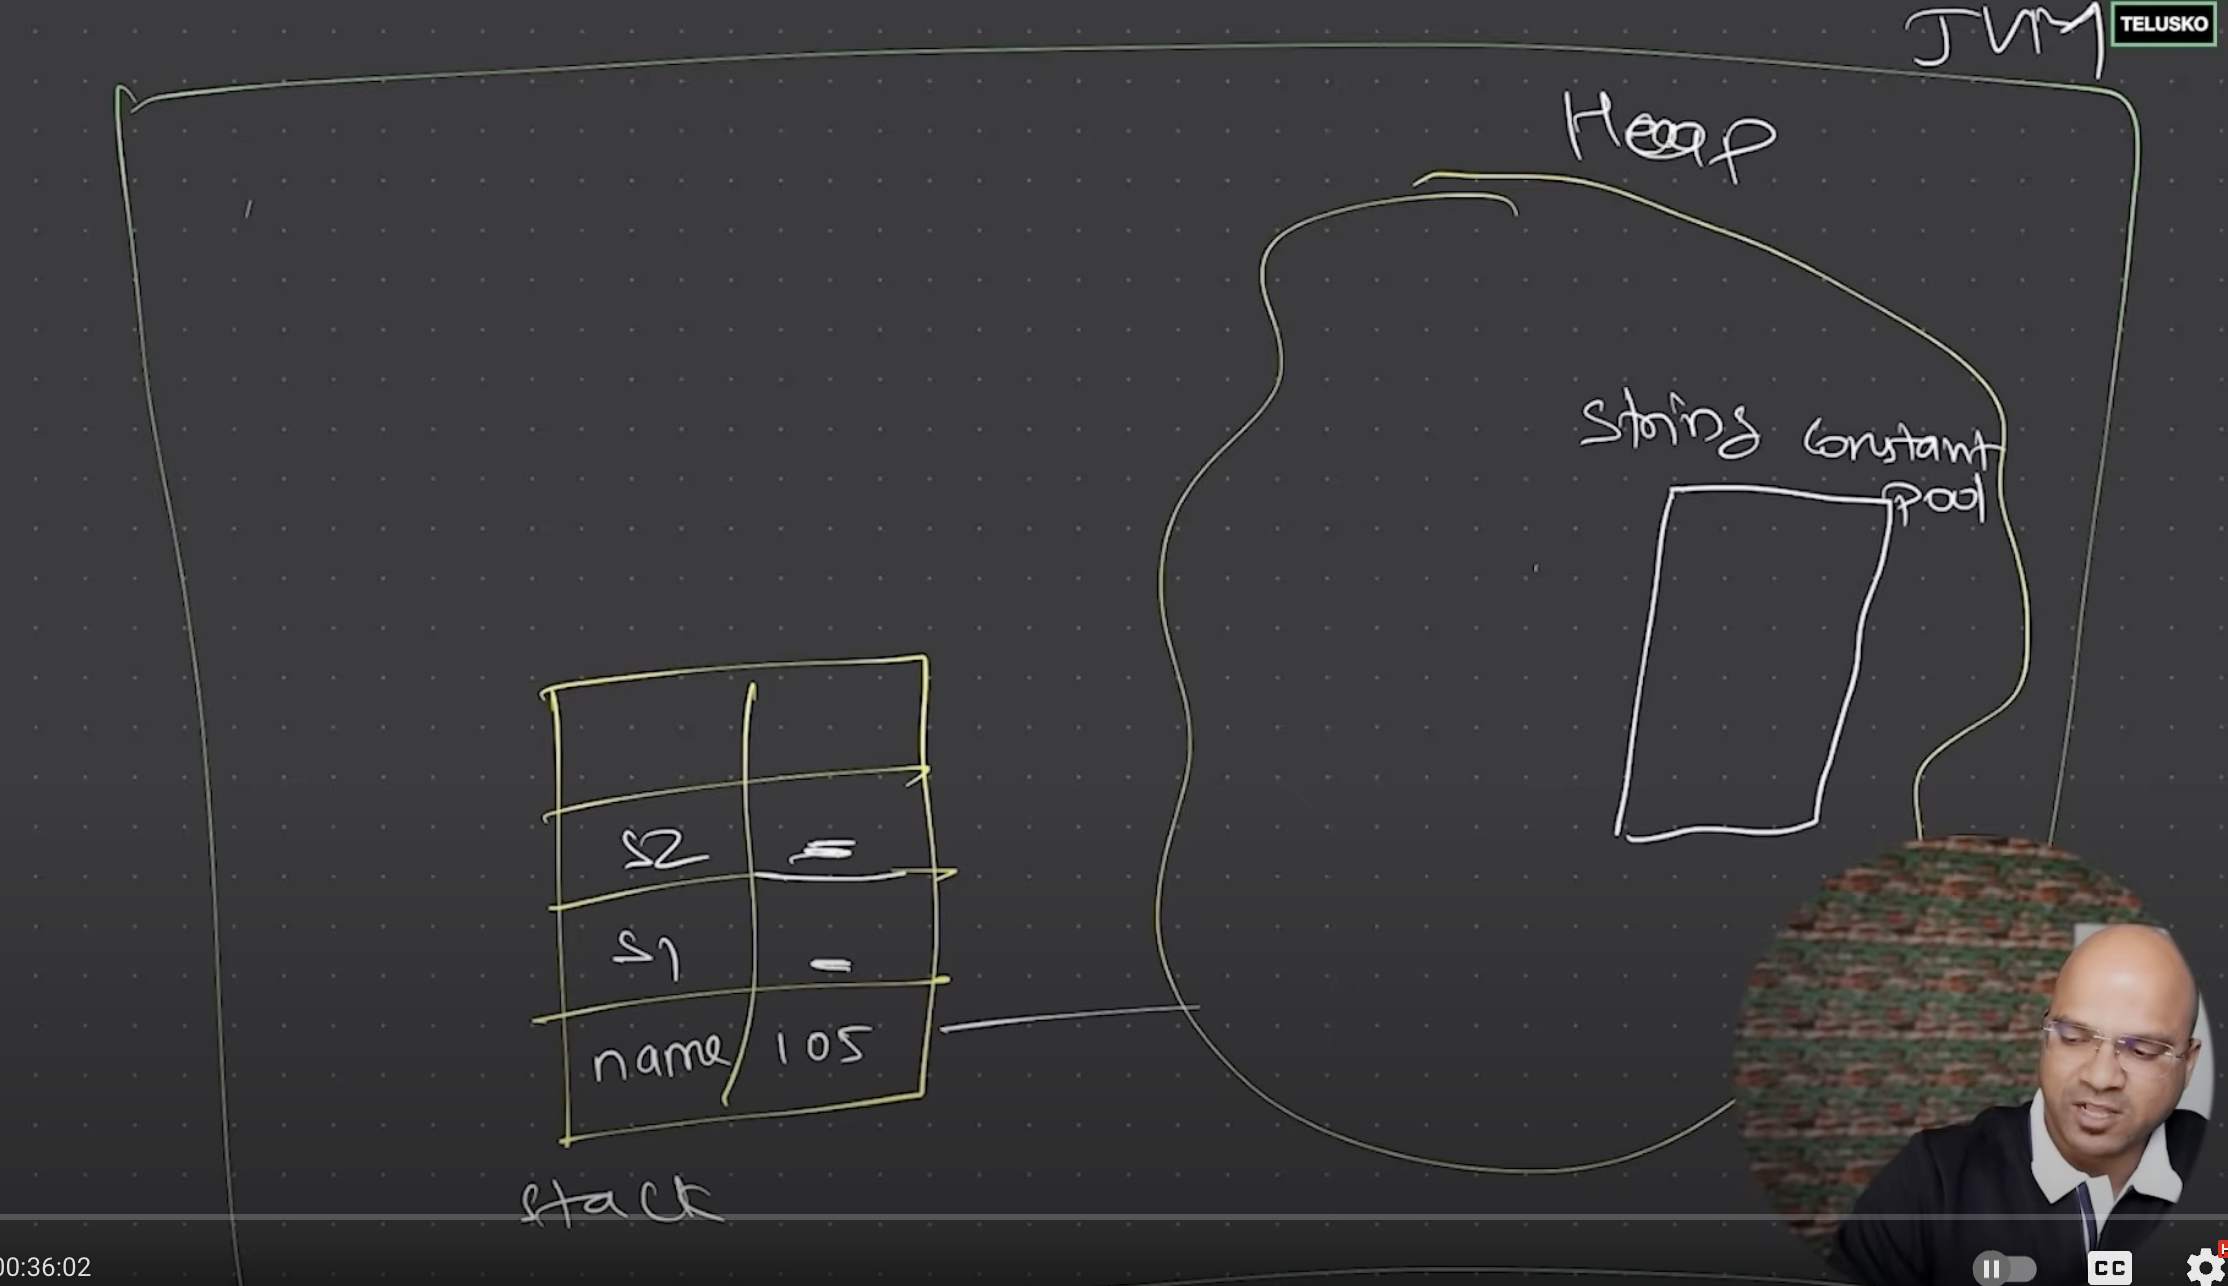 JVM
TELUSKO
Heap
String Constant
pool
S2
S1
name 105
Stack
00:36:02
CC